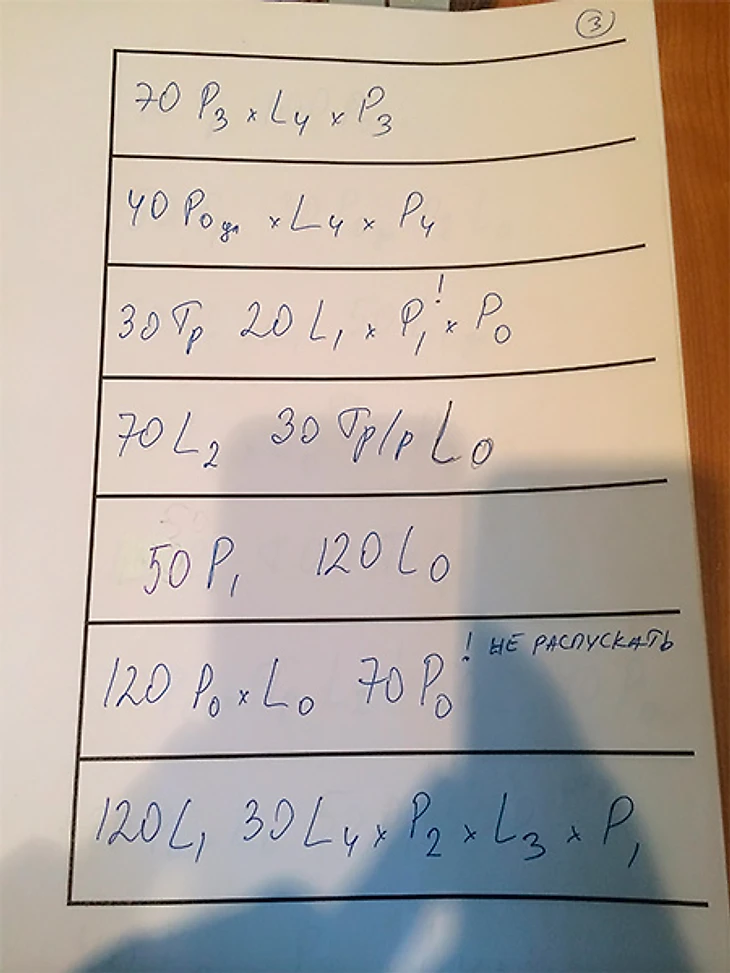 3
70 P3 x L4 x P3
40 P0 дл x L4 x P4
30 Тр 20 L1 x P1! x P0
70 L2 30 Тр/р L0
50 P1 120 L0
120 P0 x L0 70 P0! НЕ РАСПУСКАТЬ
120 L1 30 L4 x P2 x L3 x P1